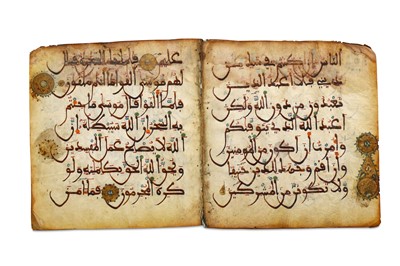 الناس ان كنتم في شك من
ديني فلا اعبد الذين
تعبدون من دون الله ولكن
اعبد الله الذي يتوفيكم
وامرت ان اكون من المومنين
وان اقم وجهك للدين حنيفا
ولا تكونن من المشركين
عليم فلما جا السحرة قال
لهم موسى القوا ما انتم ملقون
فلما القوا قال موسى ما جئتم
به السحر ان الله سيبطله ان
الله لا يصلح عمل المفسدين
ويحق الله الحق بكلمته ولو
كره المجرمون فما امن